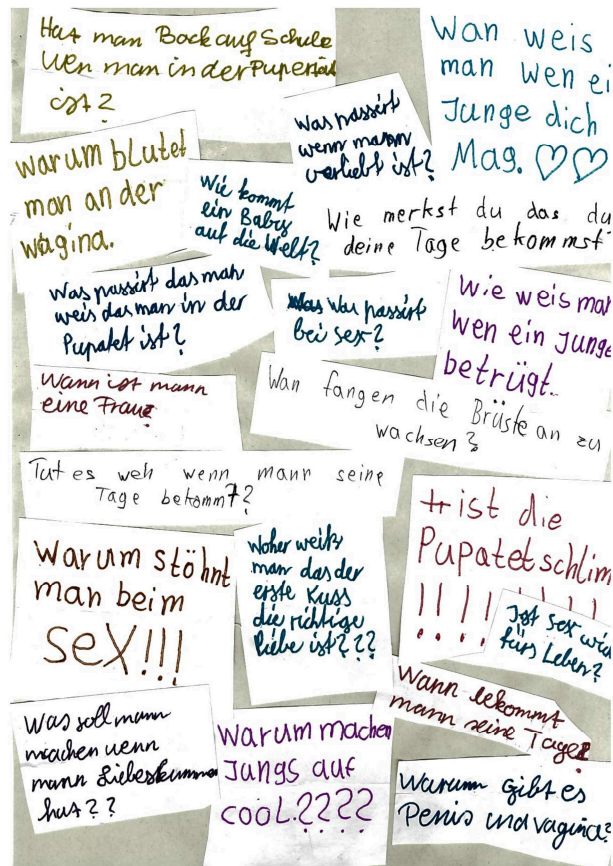 Hat man Bock auf Schule
wen man in der Pupertät
ist?
Wan weis
man wen ei
Junge dich
Mag. ♡♡
Was passiert
wenn mann
verliebt ist?
warum blutet
man an der
wagina.
Wie kommt
ein Baby
auf die Welt?
Wie merkst du das du
deine Tage bekommst
Was passiert das man
weis das man in der
Pupatet ist?
Was passirt
bei sex?
Wie weis man
wen ein Junge
betrügt.
Wann ist mann
eine Frau?
Wan fangen die Brüste an zu
wachsen?
Tut es weh wenn mann seine
Tage bekommt?
Warum stöhnt
man beim
sex!!!
Woher weiß
man das der
erste Kuss
die richtige
liebe ist???
ist die
Pupatet schlim
!!!!!!!
Ist sex wich
fürs Leben?
Wann bekommt
mann seine Tage?
Was soll mann
machen wenn
mann Liebeskummer
hat??
Warum machen
Jungs auf
cool????
Warum gibt es
Penis und vagina?